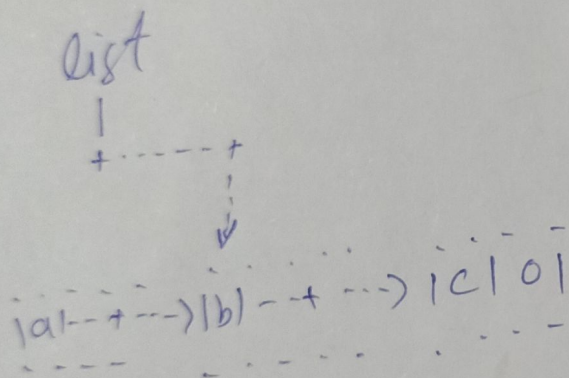 list
|
+ - - - - - - +
|a|--+--->|b|--+--->|c|0|